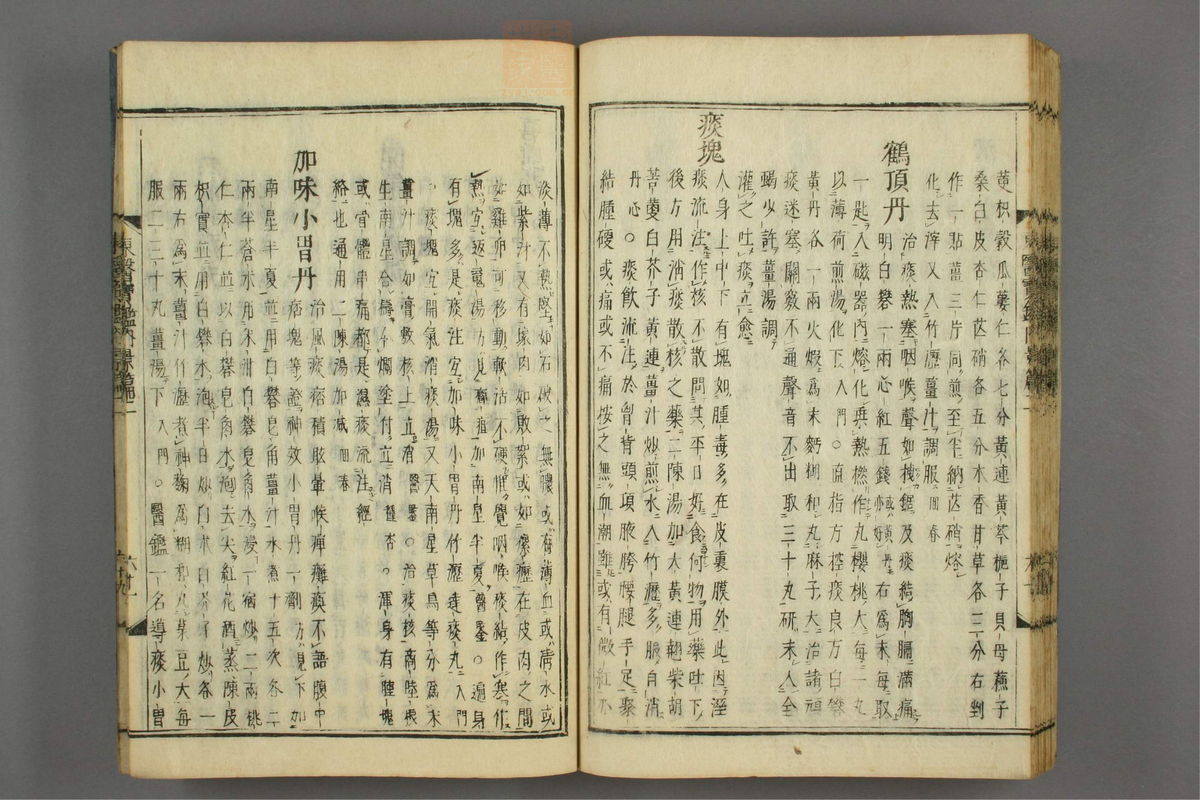 芩枳殼瓜蔞仁各七分黃連黃芩梔子貝母蘇子
桑白皮杏仁芒硝各五分木香甘草各三分右剉
作一貼薑三片同煎至半納芒硝熔
化去滓又入竹瀝薑汁調服回春
鶴頂丹
治痰熱塞咽喉聲如拽鋸及痰結胸膈滿痛
明白礬一兩心紅五錢或黃丹亦好右爲末每取
一匙入磁器內熔化乘熱撚作丸櫻桃大每一丸
以薄荷煎湯化下入門○一方控痰良方白礬
黃丹各一兩火煆爲末麪糊和丸麻子大治諸
痰迷塞關竅不通聲音不出取三十丸硏末人全
蝎少許薑湯調
灌之吐痰立愈
痰塊
人身上中下有塊如腫毒多在皮裏膜外此因濕
痰流注作核不散問其平日好食何物用藥吐下
後方用消痰散核之藥二陳湯加大黃連翹柴胡
菩蔞白芥子黃連薑汁炒煎水入竹瀝多服自消
丹心○痰飮流注於胷背頭項腋胯腰腿手足聚
結腫硬或痛或不痛按之無血潮雖或有微紅亦
淡薄不熱堅如石破之無膿或有薄血或淸水或
如紫汁又有壞肉如敗絮或如瘰癧在皮肉之間
如雞卵可移動軟活不硬惟覺咽喉痰結作寒作
熱宜返魂湯加南星半夏醫鑒○遍身
有塊多是痰注宜加味小胃丹竹瀝達痰丸入門
○痰塊宜開氣消痰湯又天南星草烏等分爲末
薑汁調如膏敷核上立消醫鑒○治痰核商陸根
生南星合擣爛塗付立消種杏○渾身有腫塊
或骨體串痛都是濕痰流注經
絡也通用二陳湯加減回春
加味小胃丹
治風痰痞積眩暈喉痺癱瘓不語腹中
痞塊等證神效小胃丹一劑方見下如
南星半夏並用白礬皂角薑汁水煮十五次各二
兩半蒼朮用米泔白礬皂角水浸一宿炒二兩桃
仁杏仁並以白礬皂角水泡去尖紅花酒蒸陳皮
枳實並用白礬水泡半日炒白朮白芥子炒各一
兩右爲末薑汁竹瀝煮神麴爲糊和丸菉豆大每
服二三十丸薑湯下入門○醫鑑一名導痰小胃